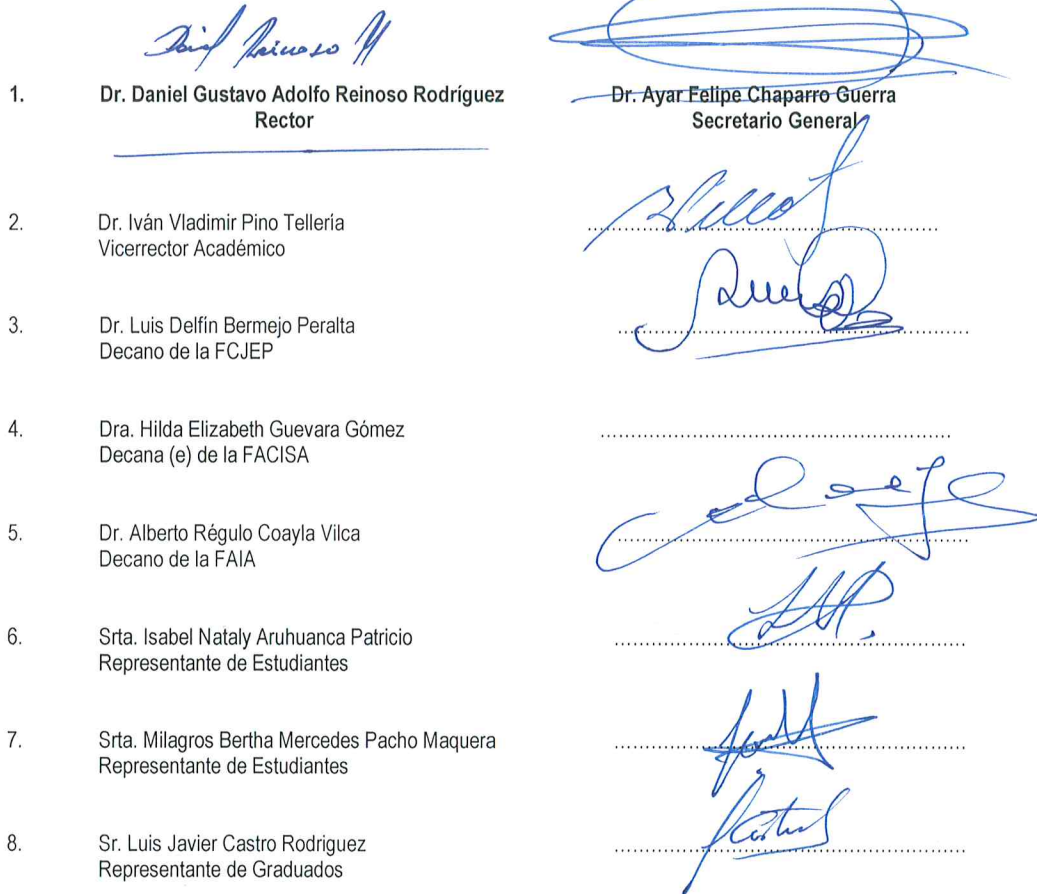 1. Dr. Daniel Gustavo Adolfo Reinoso Rodríguez Dr. Ayar Felipe Chaparro Guerra
Rector Secretario General
2. Dr. Iván Vladimir Pino Tellería
Vicerrector Académico
3. Dr. Luis Delfín Bermejo Peralta
Decano de la FCJEP
4. Dra. Hilda Elizabeth Guevara Gómez
Decana (e) de la FACISA
5. Dr. Alberto Régulo Coayla Vilca
Decano de la FAIA
6. Srta. Isabel Nataly Aruhuanca Patricio
Representante de Estudiantes
7. Srta. Milagros Bertha Mercedes Pacho Maquera
Representante de Estudiantes
8. Sr. Luis Javier Castro Rodriguez
Representante de Graduados